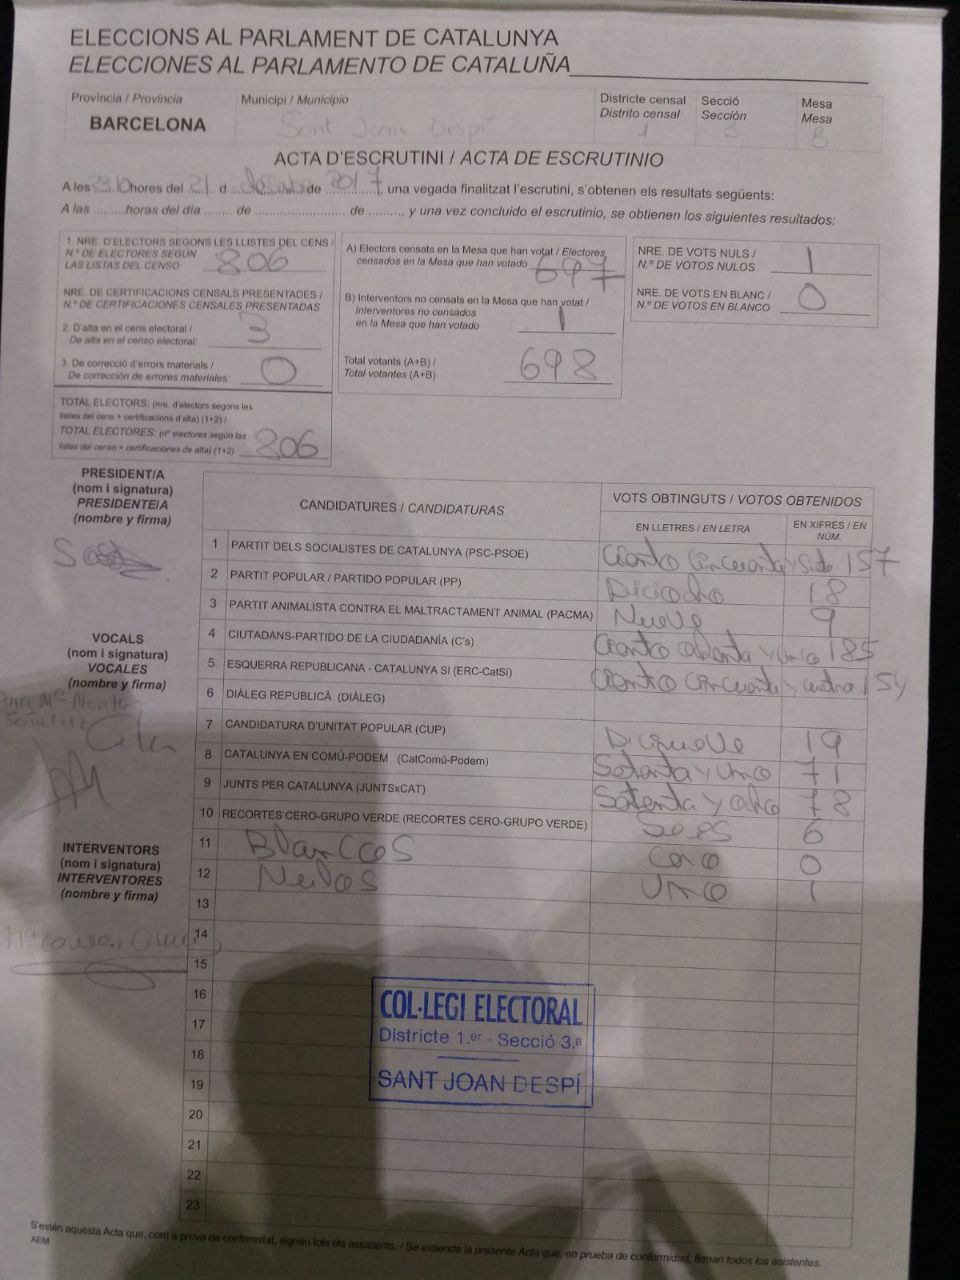 ELECCIONS AL PARLAMENT DE CATALUNYA
ELECCIONES AL PARLAMENTO DE CATALUÑA
Província / Provincia
BARCELONA
Municipi / Municipio
Sant Joan Despí
Districte censal
Distrito censal
1
Secció
Sección
3
Mesa
Mesa
B
ACTA D'ESCRUTINI / ACTA DE ESCRUTINIO
A les 23:10 hores del 21 d de 2017, una vegada finalitzat l'escrutini, s'obtenen els resultats següents:
A las ......... horas del día ....... de ....................... de ........., y una vez concluido el escrutinio, se obtienen los siguientes resultados:
1. NRE. D'ELECTORS SEGONS LES LLISTES DEL CENS /
N.º DE ELECTORES SEGÚN
LAS LISTAS DEL CENSO 806
NRE. DE CERTIFICACIONS CENSALS PRESENTADES /
N.º DE CERTIFICACIONES CENSALES PRESENTADAS
2. D'alta en el cens electoral /
De alta en el censo electoral: 3
3. De correcció d'errors materials /
De corrección de errores materiales: 0
TOTAL ELECTORS: (nre. d'electors segons les
llistes del cens + certificacions d'alta) (1+2) /
TOTAL ELECTORES: (nº electores según las
listas del censo + certificaciones de alta) (1+2) 806
A) Electors censats en la Mesa que han votat / Electores
censados en la Mesa que han votado 697
B) Interventors no censats en la Mesa que han votat /
Interventores no censados
en la Mesa que han votado 1
Total votants (A+B) /
Total votantes (A+B) 698
NRE. DE VOTS NULS /
N.º DE VOTOS NULOS 1
NRE. DE VOTS EN BLANC /
N.º DE VOTOS EN BLANCO 0
PRESIDENT/A
(nom i signatura)
PRESIDENTE/A
(nombre y firma)
VOCALS
(nom i signatura)
VOCALES
(nombre y firma)
INTERVENTORS
(nom i signatura)
INTERVENTORES
(nombre y firma)
CANDIDATURES / CANDIDATURAS
VOTS OBTINGUTS / VOTOS OBTENIDOS
EN LLETRES / EN LETRA
EN XIFRES / EN NÚM.
1 PARTIT DELS SOCIALISTES DE CATALUNYA (PSC-PSOE) Ciento Cincuenta y Siete 157
2 PARTIT POPULAR / PARTIDO POPULAR (PP) Diciocho 18
3 PARTIT ANIMALISTA CONTRA EL MALTRACTAMENT ANIMAL (PACMA) Nueve 9
4 CIUTADANS-PARTIDO DE LA CIUDADANÍA (C's) Ciento y 185
5 ESQUERRA REPUBLICANA - CATALUNYA SI (ERC-CatSí) Ciento Cincuenta y cuatro 154
6 DIÀLEG REPUBLICÀ (DIÀLEG)
7 CANDIDATURA D'UNITAT POPULAR (CUP) 19
8 CATALUNYA EN COMÚ-PODEM (CatComú-Podem) Setenta y Uno 71
9 JUNTS PER CATALUNYA (JUNTSxCAT) Setenta y ocho 78
10 RECORTES CERO-GRUPO VERDE (RECORTES CERO-GRUPO VERDE) Seis 6
11 Blancos Cero 0
12 Nulos Uno 1
13
14
15
16
17
18
19
20
21
22
23
COL·LEGI ELECTORAL
Districte 1.er - Secció 3.a
SANT JOAN DESPÍ
S'estén aquesta Acta que, com a prova de conformitat, signen tots els assistents. / Se extiende la presente Acta que, en prueba de conformidad, firman todos los asistentes.
AEM